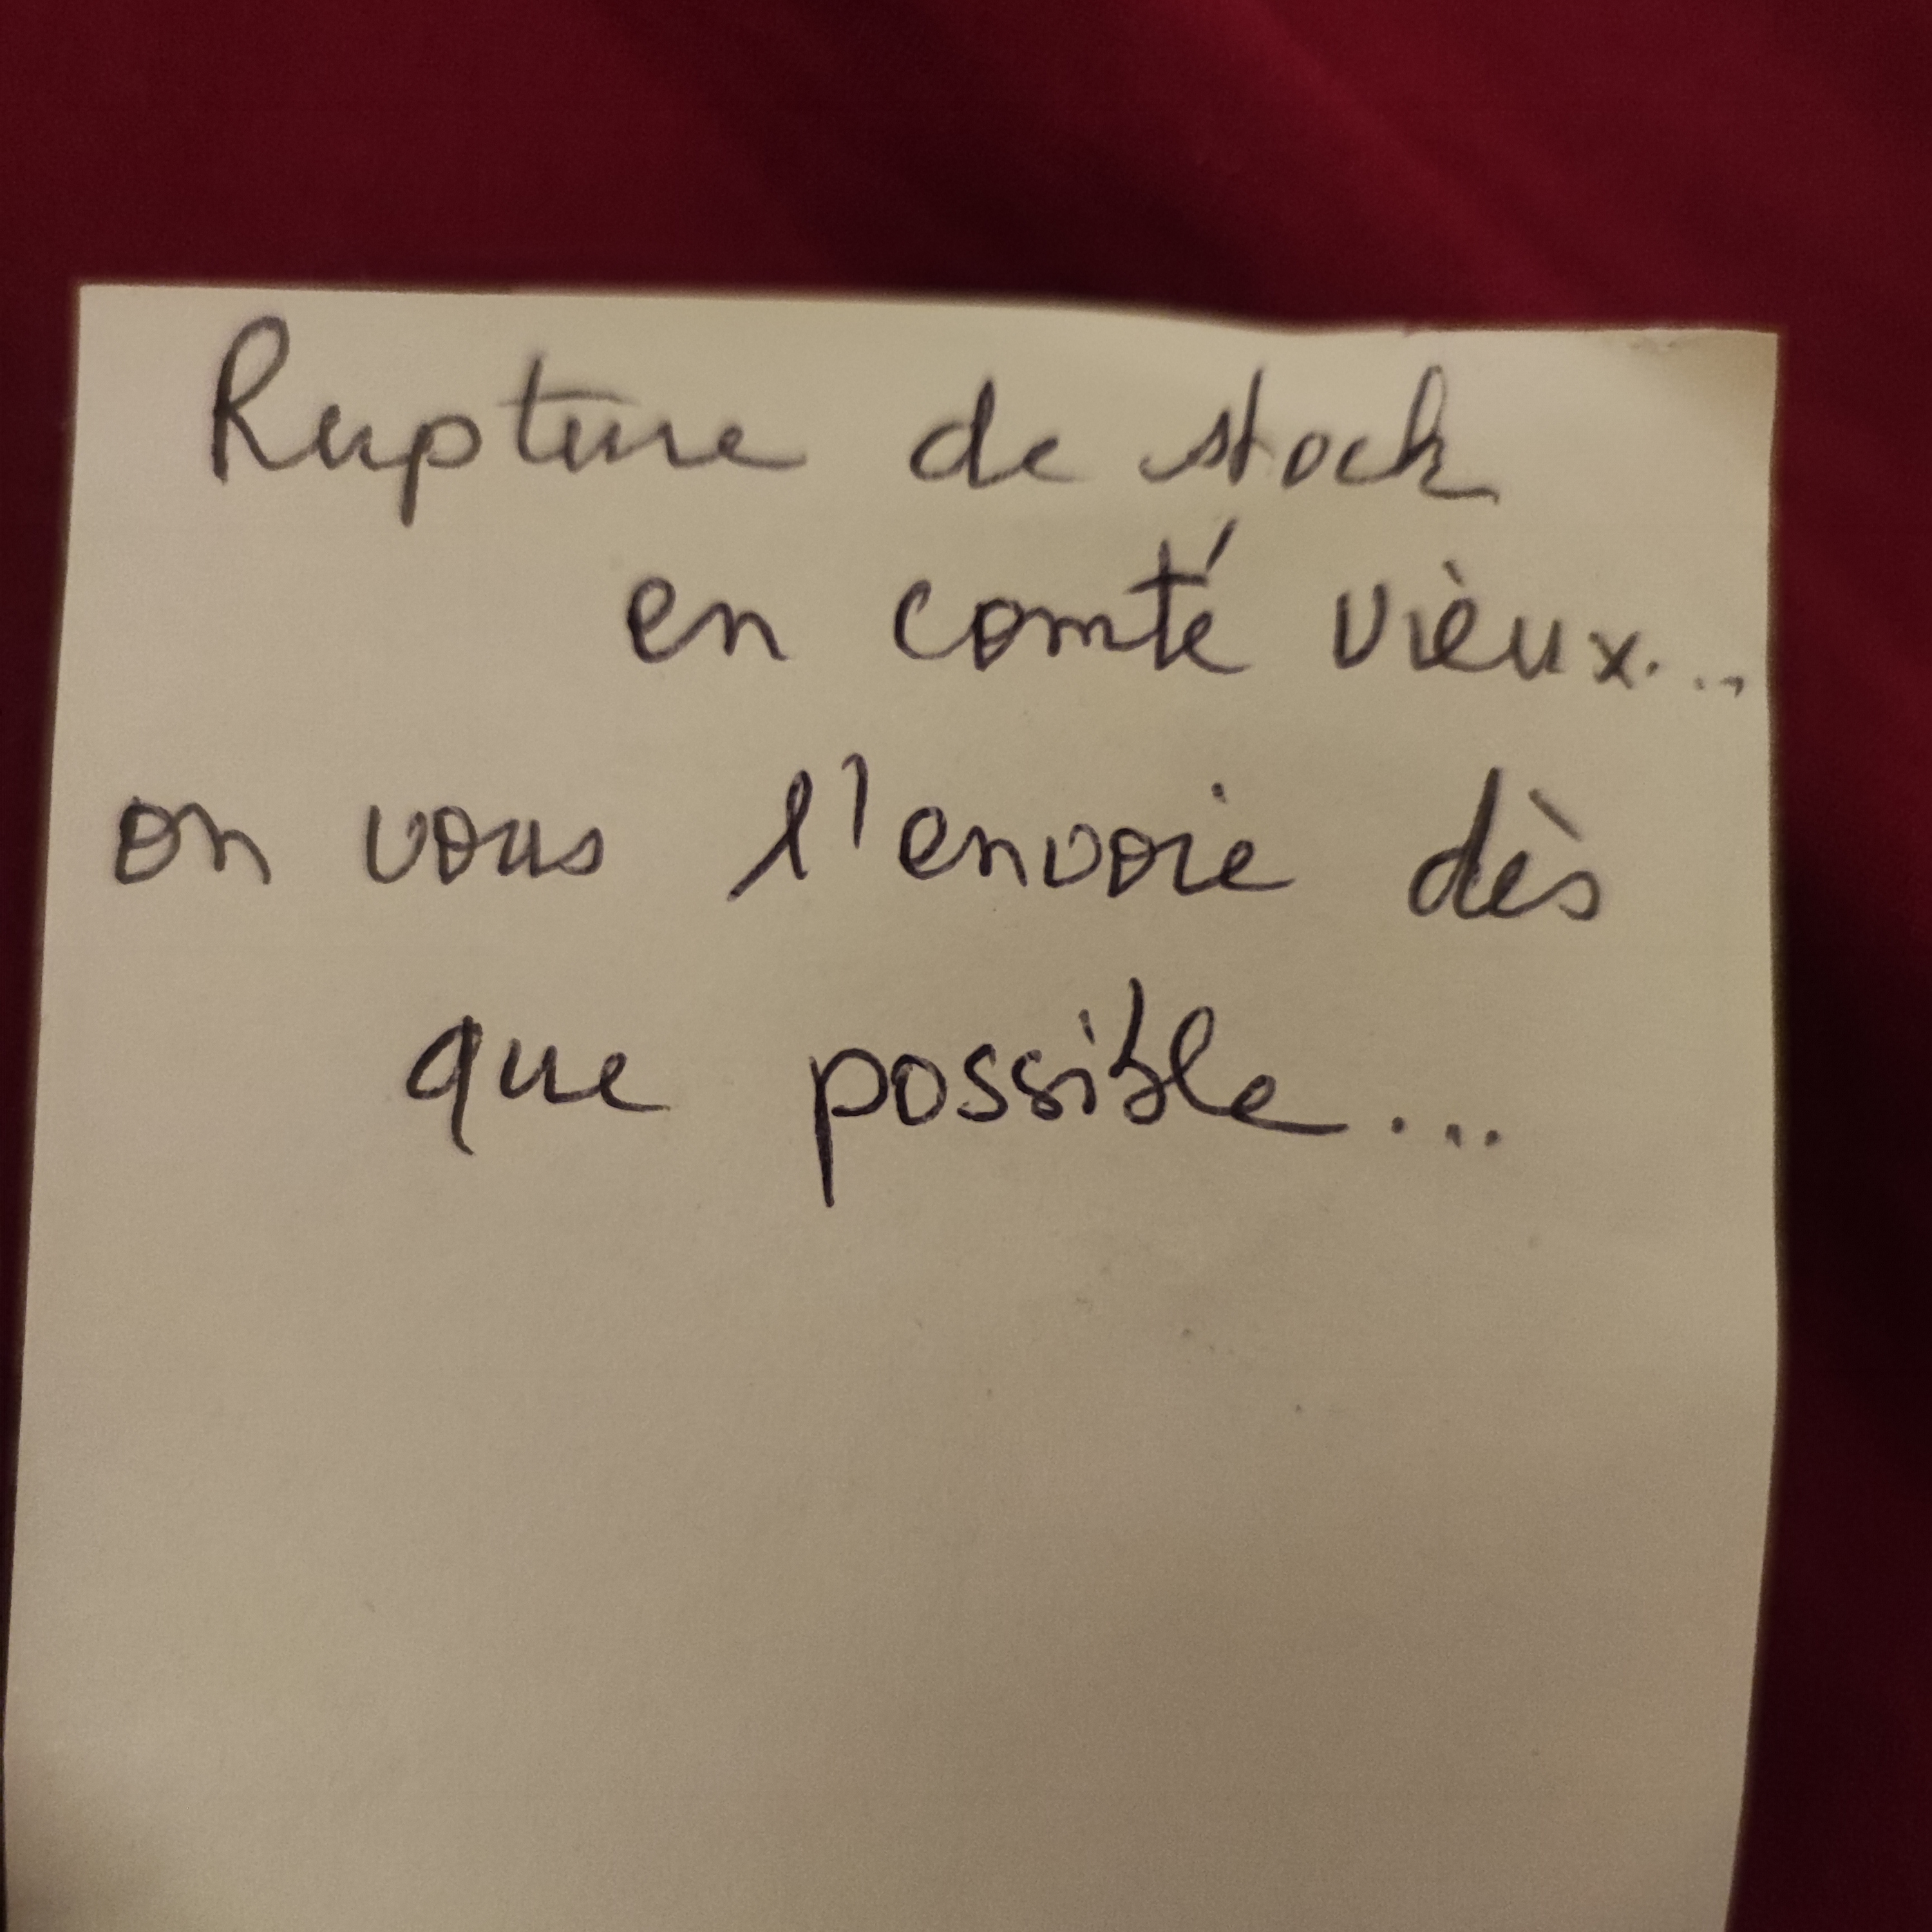 Rupture de stock
en comté vieux...
on vous l'envoie dès
que possible...